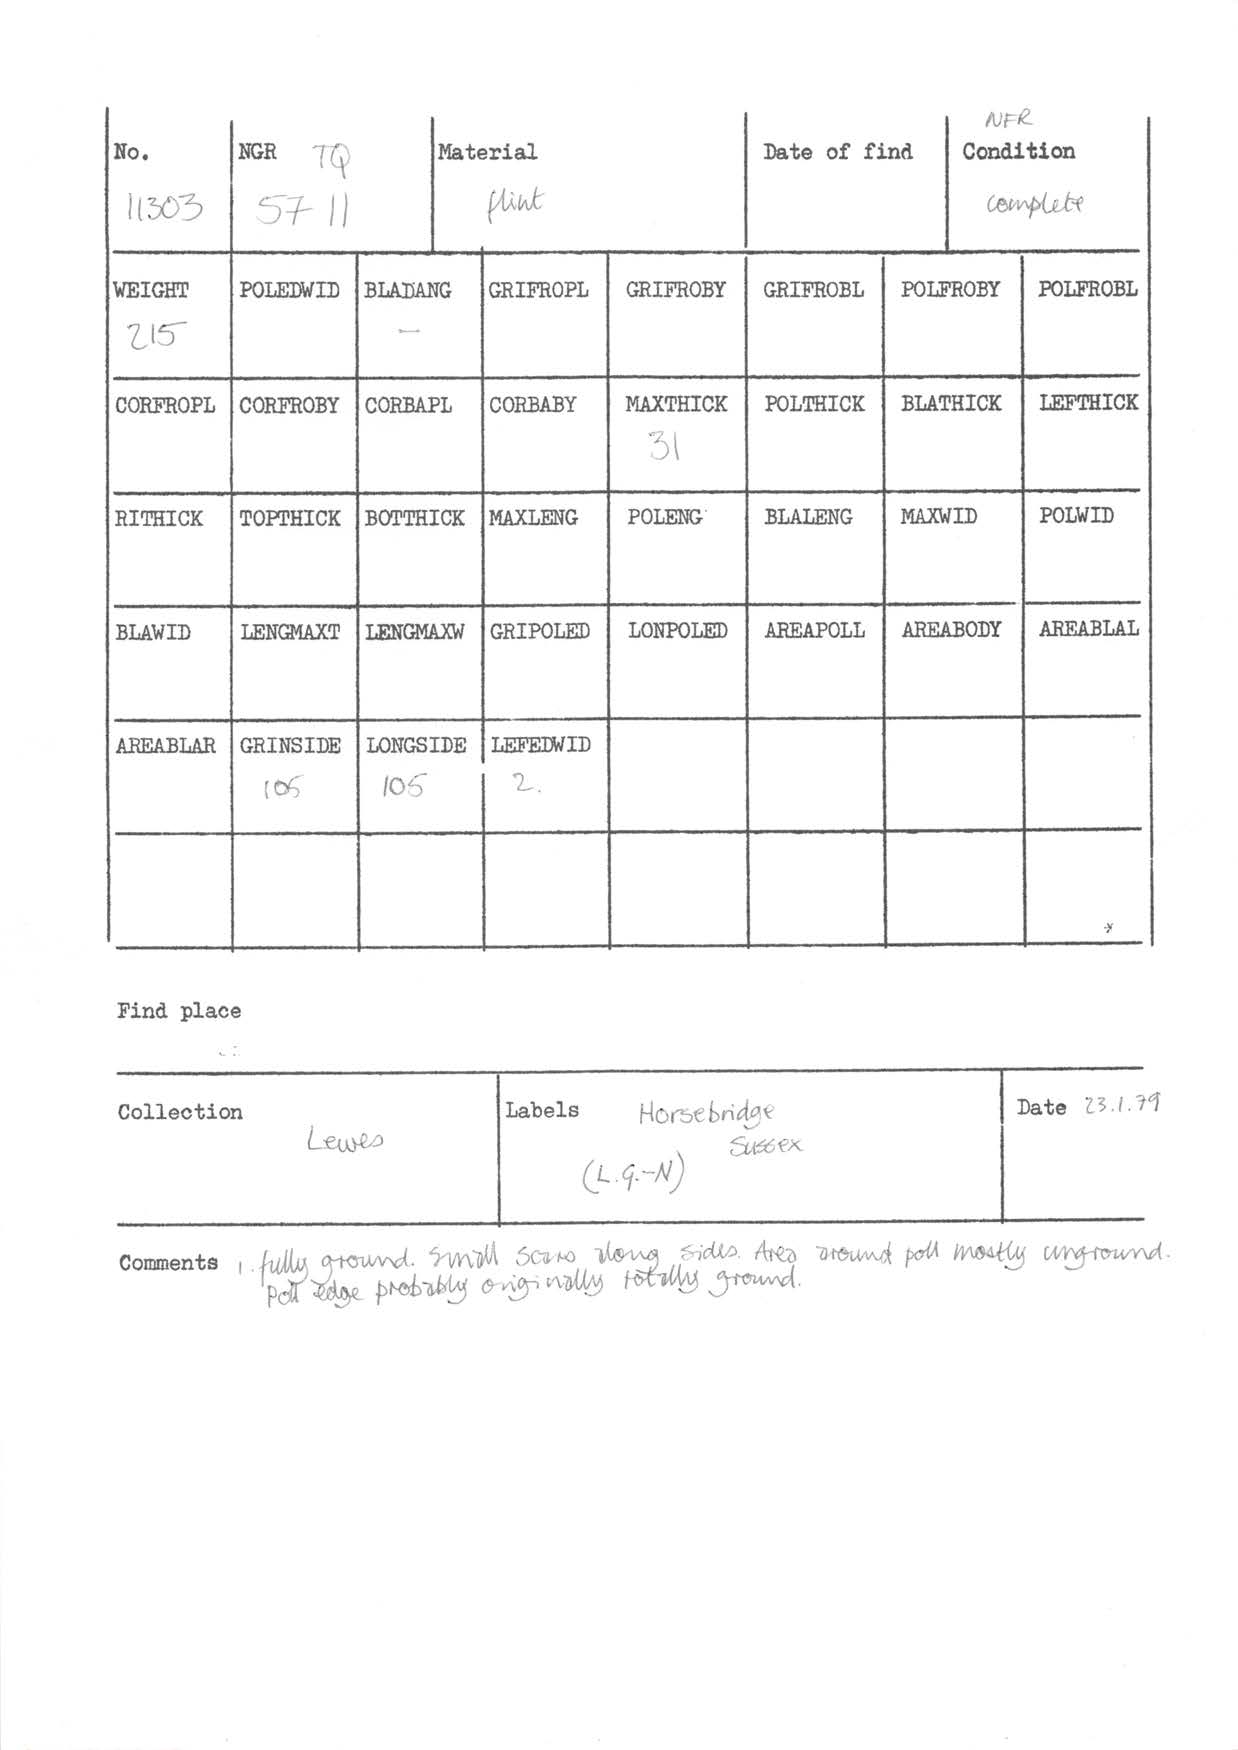 NFR
No. NGR TQ Material Date of find Condition
11303 57 11 flint complete
WEIGHT POLEDWID BLADANG GRIFROPL GRIFROBY GRIFROBL POLFROBY POLFROBL
215 —
CORFROPL CORFROBY CORBAPL CORBABY MAXTHICK POLTHICK BLATHICK LEFTHICK
31
RITHICK TOPTHICK BOTTHICK MAXLENG POLENG BLALENG MAXWID POLWID
BLAWID LENGMAXT LENGMAXW GRIPOLED LONPOLED AREAPOLL AREABODY AREABLAL
AREABLAR GRINSIDE LONGSIDE LEFEDWID
105 105 2.
Find place
Collection Labels Horsebridge Date 23.1.79
Lewes Sussex
(L.G.-N)
Comments 1. fully ground. Small scars along sides. Area around poll mostly unground.
Poll edge probably originally totally ground.